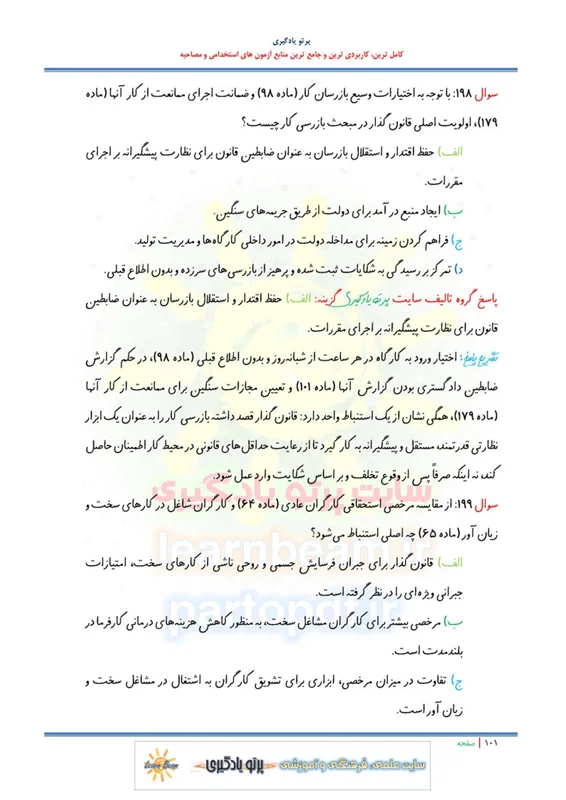 پرتو یادگیری
کامل ترین، کاربردی ترین و جامع ترین منابع آزمون های استخدامی و مصاحبه
سوال ۱۹۸: با توجه به اختیارات وسیع بازرسان کار (ماده ۹۸) و ضمانت اجرای ممانعت از کار آنها (ماده
۱۷۹)، اولویت اصلی قانون گذار در مبحث بازرسی کار چیست؟
الف) حفظ اقتدار و استقلال بازرسان به عنوان ضابطین قانون برای نظارت پیشگیرانه بر اجرای
مقررات.
ب) ایجاد منبع درآمد برای دولت از طریق جریمه های سنگین.
ج) فراهم کردن زمینه برای مداخله دولت در امور داخلی کارگاه ها و مدیریت تولید.
د) تمرکز بر رسیدگی به شکایات ثبت شده و پرهیز از بازرسی های سرزده و بدون اطلاع قبلی.
پاسخ گروه تالیف سایت پرتو یادگیری گزینه: الف) حفظ اقتدار و استقلال بازرسان به عنوان ضابطین
قانون برای نظارت پیشگیرانه بر اجرای مقررات.
تشریح پاسخ: اختیار ورود به کارگاه در هر ساعت از شبانه روز و بدون اطلاع قبلی (ماده ۹۸)، در حکم گزارش
ضابطین دادگستری بودن گزارش آنها (ماده ۱۰۱) و تعیین مجازات سنگین برای ممانعت از کار آنها
(ماده ۱۷۹)، همگی نشان از یک استنباط واحد دارد: قانون گذار قصد داشته بازرسی کار را به عنوان یک ابزار
نظارتی قدرتمند، مستقل و پیشگیرانه به کار گیرد تا از رعایت حداقل های قانونی در محیط کار اطمینان حاصل
کند، نه اینکه صرفاً پس از وقوع تخلف و بر اساس شکایت وارد عمل شود.
سایت پرتو یادگیری
سوال ۱۹۹: از مقایسه مرخصی استحقاقی کارگران عادی (ماده ۶۴) و کارگران شاغل در کارهای سخت و
زیان آور (ماده ۶۵) چه اصلی استنباط می شود؟
learnbeam.ir
الف) قانون گذار برای جبران فرسایش جسمی و روحی ناشی از کارهای سخت، امتیازات
جبرانی ویژه ای را در نظر گرفته است.
partopdf.ir
ب) مرخصی بیشتر برای کارگران مشاغل سخت، به منظور کاهش هزینه های درمانی کارفرما در
بلندمدت است.
ج) تفاوت در میزان مرخصی، ابزاری برای تشویق کارگران به اشتغال در مشاغل سخت و
زیان آور است.
۱۰۱ | صفحه
Learn Beam
سایت علمی، فرهنگی و آموزشی پرتو یادگیری